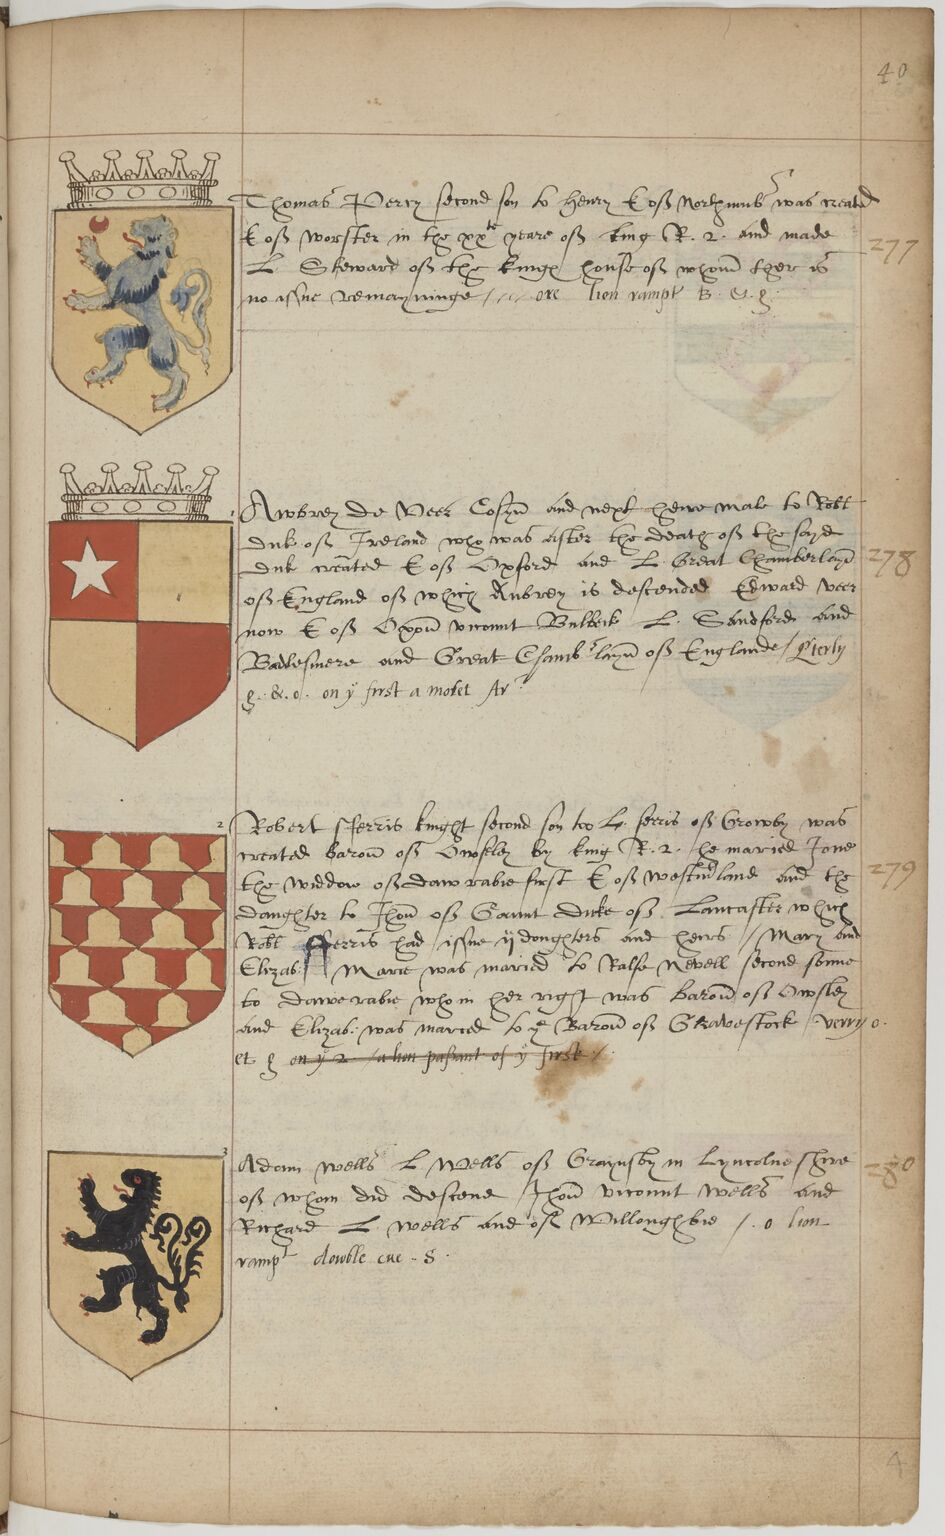 40
Thomas Percy second son to Henry E off Northumb was created
E off Worster in the xxth yeare off king R. 2. and made
L Steward off the kings house off whom ther is
no issue remayninge /// ore lion rampt B. &. g.
277
Awbrey de Veer Cosyn and next heire male to Robt
duk off Ireland who was after the death off the sayd
duk created E off Oxford and L Great Chamberlayn
278
off England off which Aubrey is descended Edward veer
now E off Oxon vicount Bulbeck L. Sandford and
Badlesmere and Great Chamblayn off Englande / Qterly
g. &. o. on y first a molet Ar
2
Robert Fferris knight second son too L. ferris off Growby was
created Baron off Owsley by king R. 2. he maried Jone
the widdow off daw rabie first E off westmland and the
279
daughter to Jhon off Gaunt duke off Lancaster which
Robt Fferris had issue ij doughters and heirs / Mary and
Elizab: / Marie was maried to Ralfe Nevell second sonne
to dawe rabie who in her right was Baron off Owsley
and Elizab: was maried to ye Baron off Gravestock / verry o.
et g on y 2 / a lion passant of y first /.
3
Adam wells L Wells off Graynsby in Lyncolne shire
280
off whom did descene Jhon vicount wells and
Richard L wells and off Willoughbie /. o lion
rampt dowble cue . S.
4